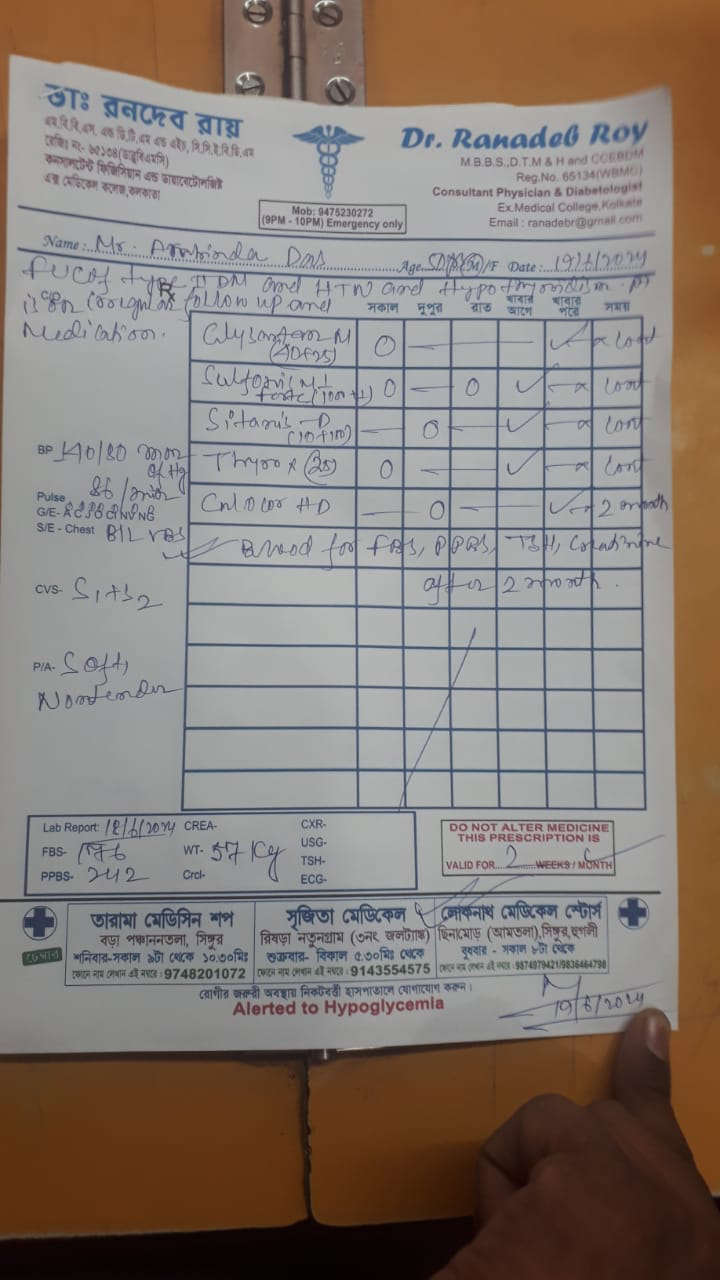 ডাঃ রনদেব রায়
এম.বি.বি.এস. এন্ড ডি.টি.এম এন্ড এইচ, সি.সি.ই.বি.ডি.এম
রেজিঃ নং- ৬৫১৩৪(ডাব্লুবিএমসি)
কনসালটেন্ট ফিজিসিয়ান এন্ড ডায়াবেটোলজিষ্ট
এক্স মেডিকেল কলেজ,কলকাতা
Dr. Ranadeb Roy
M.B.B.S.,D.T.M & H and CCEBDM
Reg.No. 65134(WBMC)
Consultant Physician & Diabetologist
Ex.Medical College,Kolkata
Email : ranadebr@gmail.com
Mob: 9475230272
(9PM - 10PM) Emergency only
Name : Mr. Das Age (M)/F Date : 19/6/2024
type II DM and HTN and Hypothyroidism. Pt
is on follow up and
Medication.
C/o
Rx
সকাল দুপুর রাত খাবার আগে খাবার পরে সময়
M O — — ✓ cont
(100+1) O — O ✓ cont
— O — ✓ cont
Thyrox (25) O — ✓ cont
HD — O — ✓ 2 month
Blood for FBS, PPBS, TSH, Creatinine
after 2 month.
BP 140/80 mm of Hg
Pulse 86/min
G/E-
S/E - Chest B/L VBS
CVS- S1+S2
P/A- Soft,
Nontender
Lab Report: 18/6/2024 CREA- CXR-
FBS- 176 WT- 57 Kg USG-
PPBS- 242 Crcl- TSH-
ECG-
DO NOT ALTER MEDICINE
THIS PRESCRIPTION IS
VALID FOR 2 WEEKS / MONTH
চেম্বার
তারামা মেডিসিন শপ
বড়া পঞ্চাননতলা, সিঙ্গুর
শনিবার-সকাল ৯টা থেকে ১০.৩০মিঃ
ফোনে নাম লেখান এই নম্বরে : 9748201072
সৃজিতা মেডিকেল
রিষড়া নতুনগ্রাম (৩নং জলট্যাঙ্ক)
শুক্রবার- বিকাল ৫.৩০মিঃ থেকে
ফোনে নাম লেখান এই নম্বরে : 9143554575
লোকনাথ মেডিকেল স্টোর্স
ছিনামোড় (আমতলা),সিঙ্গুর,হুগলী
বুধবার - সকাল ৮টা থেকে
ফোনে নাম লেখান এই নম্বরে : 9874979421/9836464798
রোগীর জরুরী অবস্থায় নিকটবর্তী হাসপাতালে যোগাযোগ করুন।
Alerted to Hypoglycemia
19/6/2024